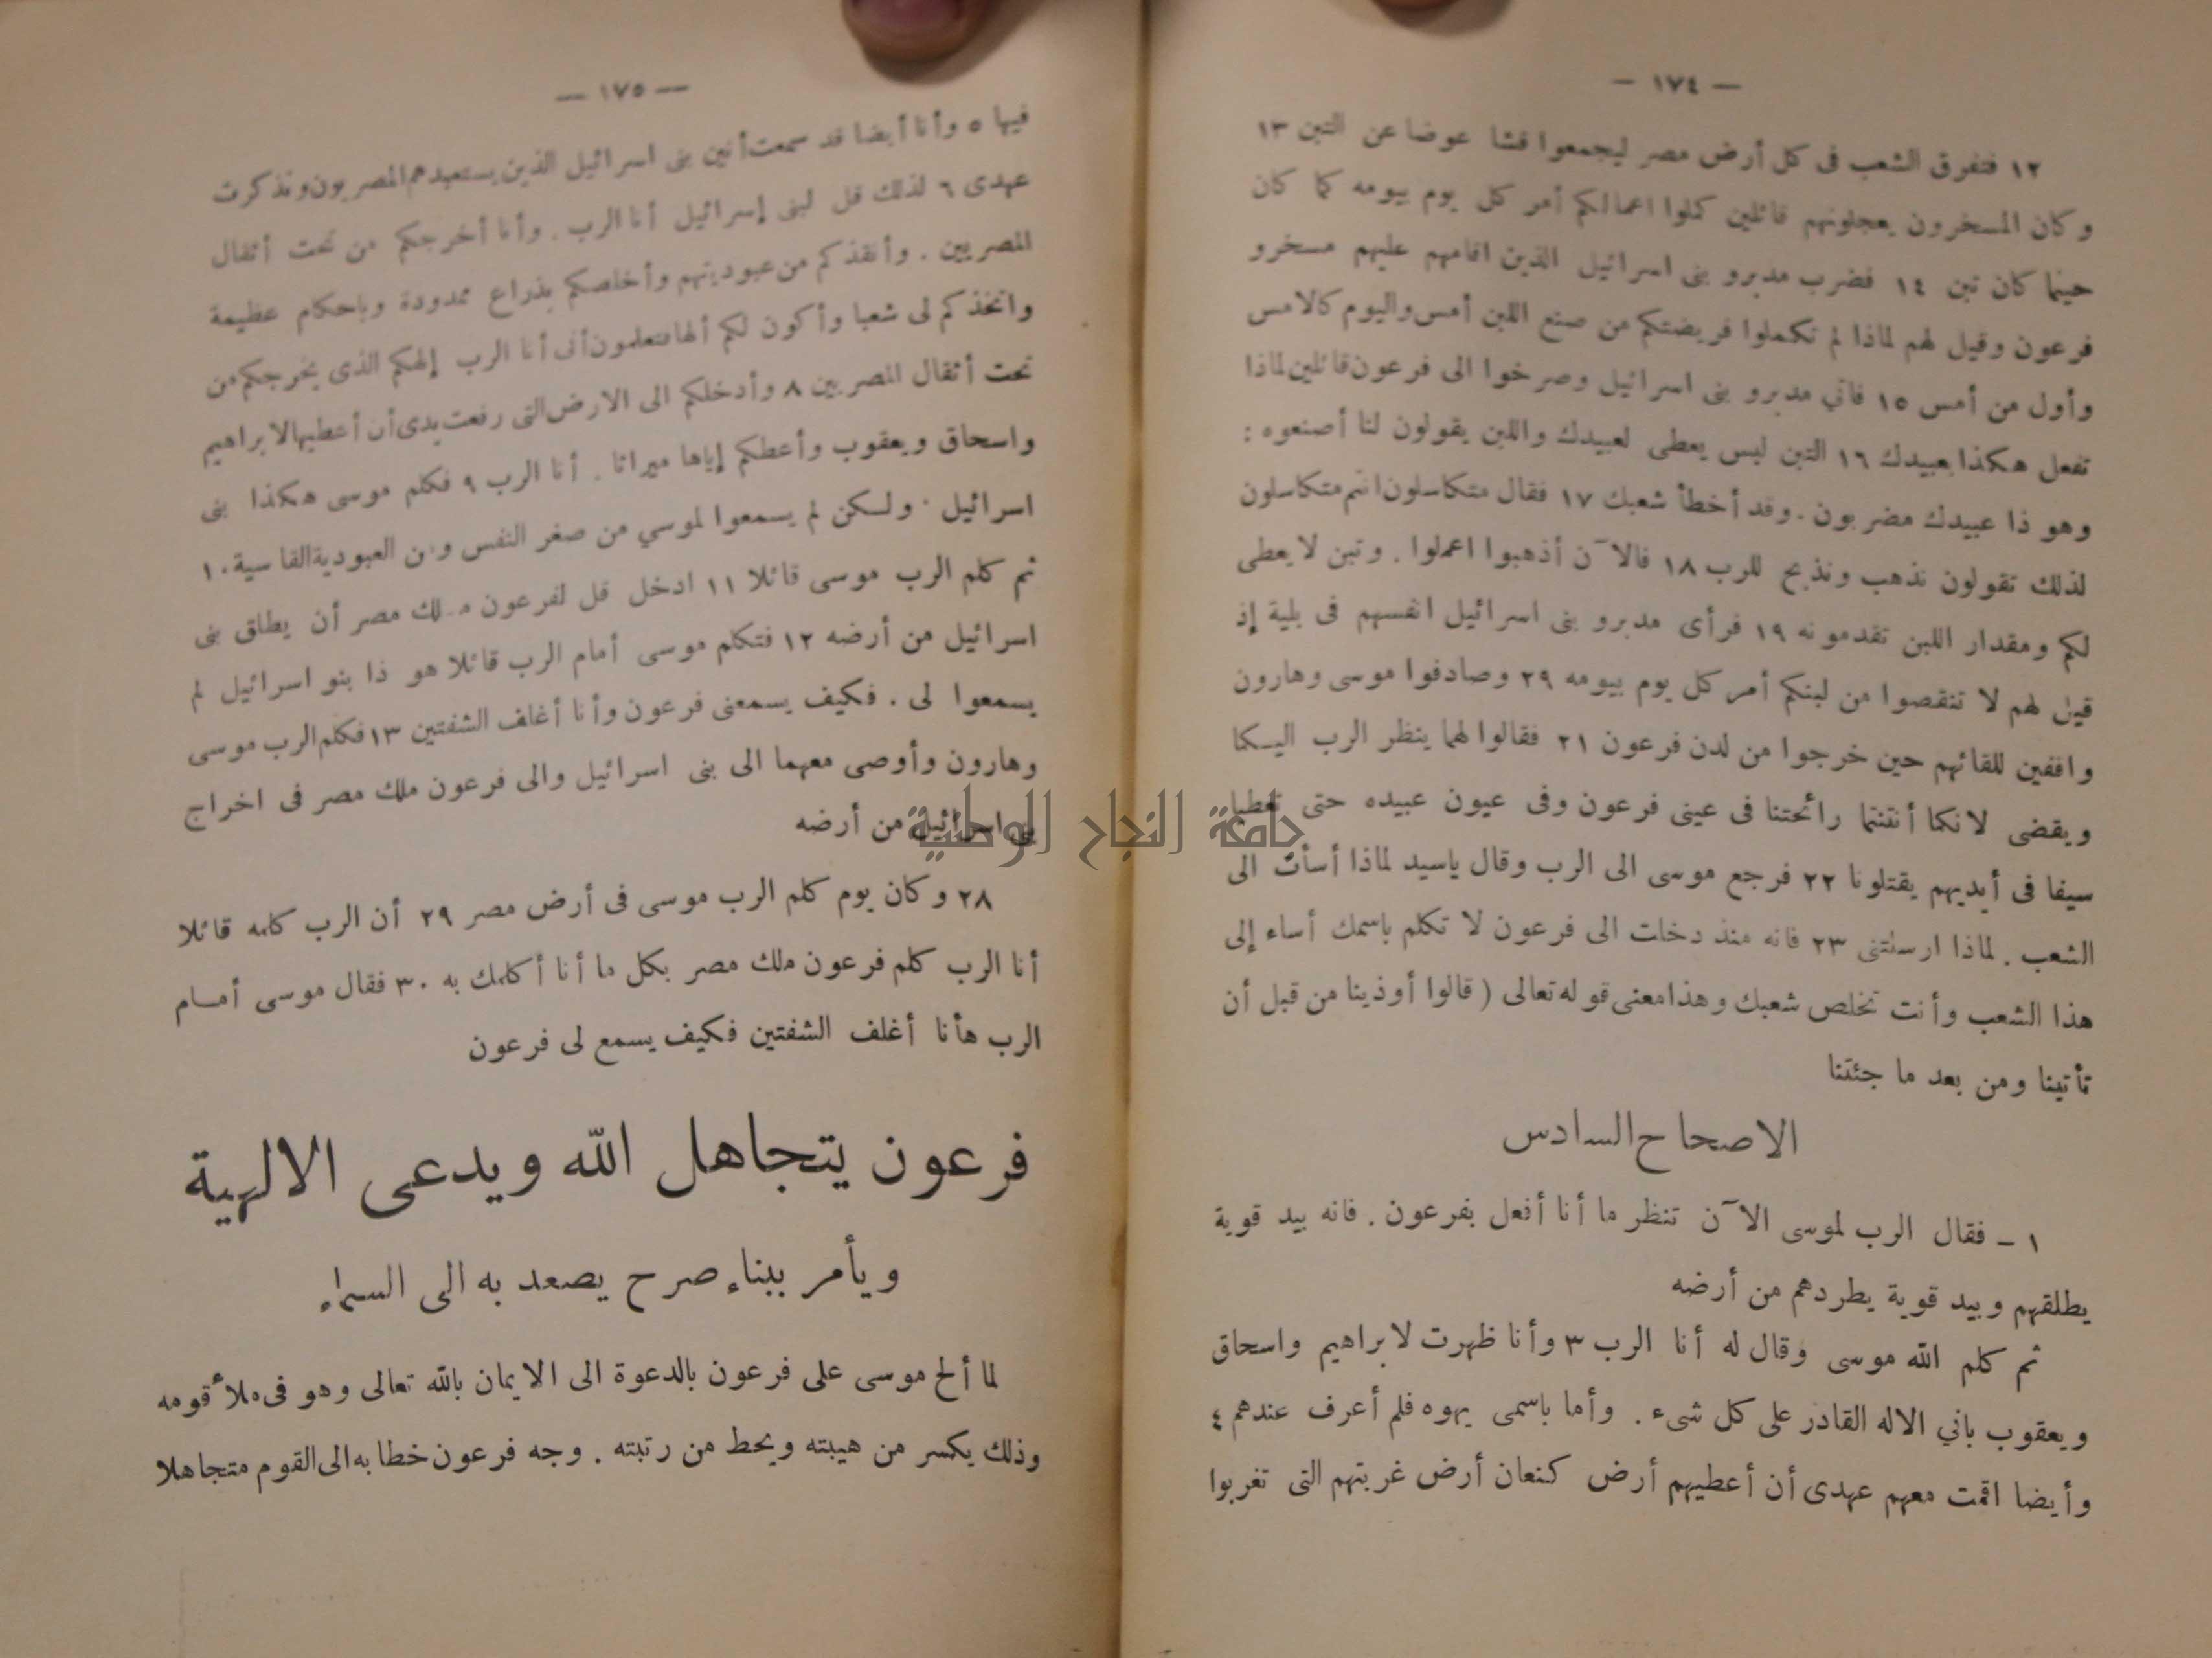 — ١٧٤ —
١٢ فتفرق الشعب فى كل أرض مصر ليجمعوا قشا عوضا عن التبن ١٣
وكان المسخرون يعجلونهم قائلين كملوا اعمالكم أمر كل يوم بيومه كما كان
حينما كان تبن ١٤ فضرب مدبرو بنى اسرائيل الذين اقامهم عليهم مسخرو
فرعون وقيل لهم لماذا لم تكملوا فريضتكم من صنع اللبن أمس واليوم كالامس
وأول من أمس ١٥ فاتي مدبرو بنى اسرائيل وصرخوا الى فرعون قائلين لماذا
تفعل هكذا بعبيدك ١٦ التبن ليس يعطى لعبيدك واللبن يقولون لنا أصنعوه :
وهو ذا عبيدك مضربون . وقد أخطأ شعبك ١٧ فقال متكاسلون انتم متكاسلون
لذلك تقولون نذهب ونذبح للرب ١٨ فالآن أذهبوا اعملوا . وتبن لا يعطى
لكم ومقدار اللبن تقدمونه ١٩ فرأى مدبرو بنى اسرائيل انفسهم فى بلية إذ
قيل لهم لا تنقصوا من لبنكم أمر كل يوم بيومه ٢٩ وصادفوا موسى وهارون
واقفين للقائهم حين خرجوا من لدن فرعون ٢١ فقالوا لهما ينظر الرب اليكما
ويقضى لانكما أنتنتما رائحتنا فى عينى فرعون وفى عيون عبيده حتى تعطيا
سيفا فى أيديهم يقتلونا ٢٢ فرجع موسى الى الرب وقال ياسيد لماذا أسأت الى
الشعب . لماذا ارسلتنى ٢٣ فانه منذ دخلت الى فرعون لا تكلم باسمك أساء إلى
هذا الشعب وأنت تخلص شعبك وهذا معنى قوله تعالى ( قالوا أوذينا من قبل أن
تأتينا ومن بعد ما جئتنا
الاصحاح السادس
١ – فقال الرب لموسى الآن تنظر ما أنا أفعل بفرعون . فانه بيد قوية
يطلقهم وبيد قوية يطردهم من أرضه
ثم كلم الله موسى وقال له أنا الرب ٣ وأنا ظهرت لابراهيم واسحاق
ويعقوب باني الاله القادر على كل شىء . وأما باسمى يهوه فلم أعرف عندهم ٤
وأيضا اقمت معهم عهدى أن أعطيهم أرض كنعان أرض غربتهم التى تغربوا
— ١٧٥ —
فيها ٥ وأنا أيضا قد سمعت أنين بنى اسرائيل الذين يستعبدهم المصريون وتذكرت
عهدى ٦ لذلك قل لبنى إسرائيل أنا الرب . وأنا أخرجكم من تحت أثقال
المصريين . وأنقذكم من عبوديتهم وأخلصكم بذراع ممدودة وباحكام عظيمة
واتخذكم لى شعبا وأكون لكم ألها فتعلمون أنى أنا الرب إلهكم الذى يخرجكم من
تحت أثقال المصريين ٨ وأدخلكم الى الارض التى رفعت يدى أن أعطيها لابراهيم
واسحاق ويعقوب وأعطكم إياها ميراثا . أنا الرب ٩ فكلم موسى هكذا بنى
اسرائيل . ولكن لم يسمعوا لموسي من صغر النفس ومن العبودية القاسية ١٠
ثم كلم الرب موسى قائلا ١١ ادخل قل لفرعون ملك مصر أن يطلق بنى
اسرائيل من أرضه ١٢ فتكلم موسى أمام الرب قائلا هو ذا بنو اسرائيل لم
يسمعوا لى . فكيف يسمعنى فرعون وأنا أغلف الشفتين ١٣ فكلم الرب موسى
وهارون وأوصى معهما الى بنى اسرائيل والى فرعون ملك مصر فى اخراج
بنى اسرائيل من أرضه
جامعة النجاح الوطنية
٢٨ وكان يوم كلم الرب موسى فى أرض مصر ٢٩ أن الرب كلمه قائلا
أنا الرب كلم فرعون ملك مصر بكل ما أنا أكلمك به ٣٠ فقال موسى أمام
الرب هأنا أغلف الشفتين فكيف يسمع لى فرعون
فرعون يتجاهل الله ويدعى الالهية
ويأمر ببناء صرح يصعد به الى السماء
لما ألح موسى على فرعون بالدعوة الى الايمان بالله تعالى وهو فى ملأ قومه
وذلك يكسر من هيبته ويحط من رتبته . وجه فرعون خطابه الى القوم متجاهلا